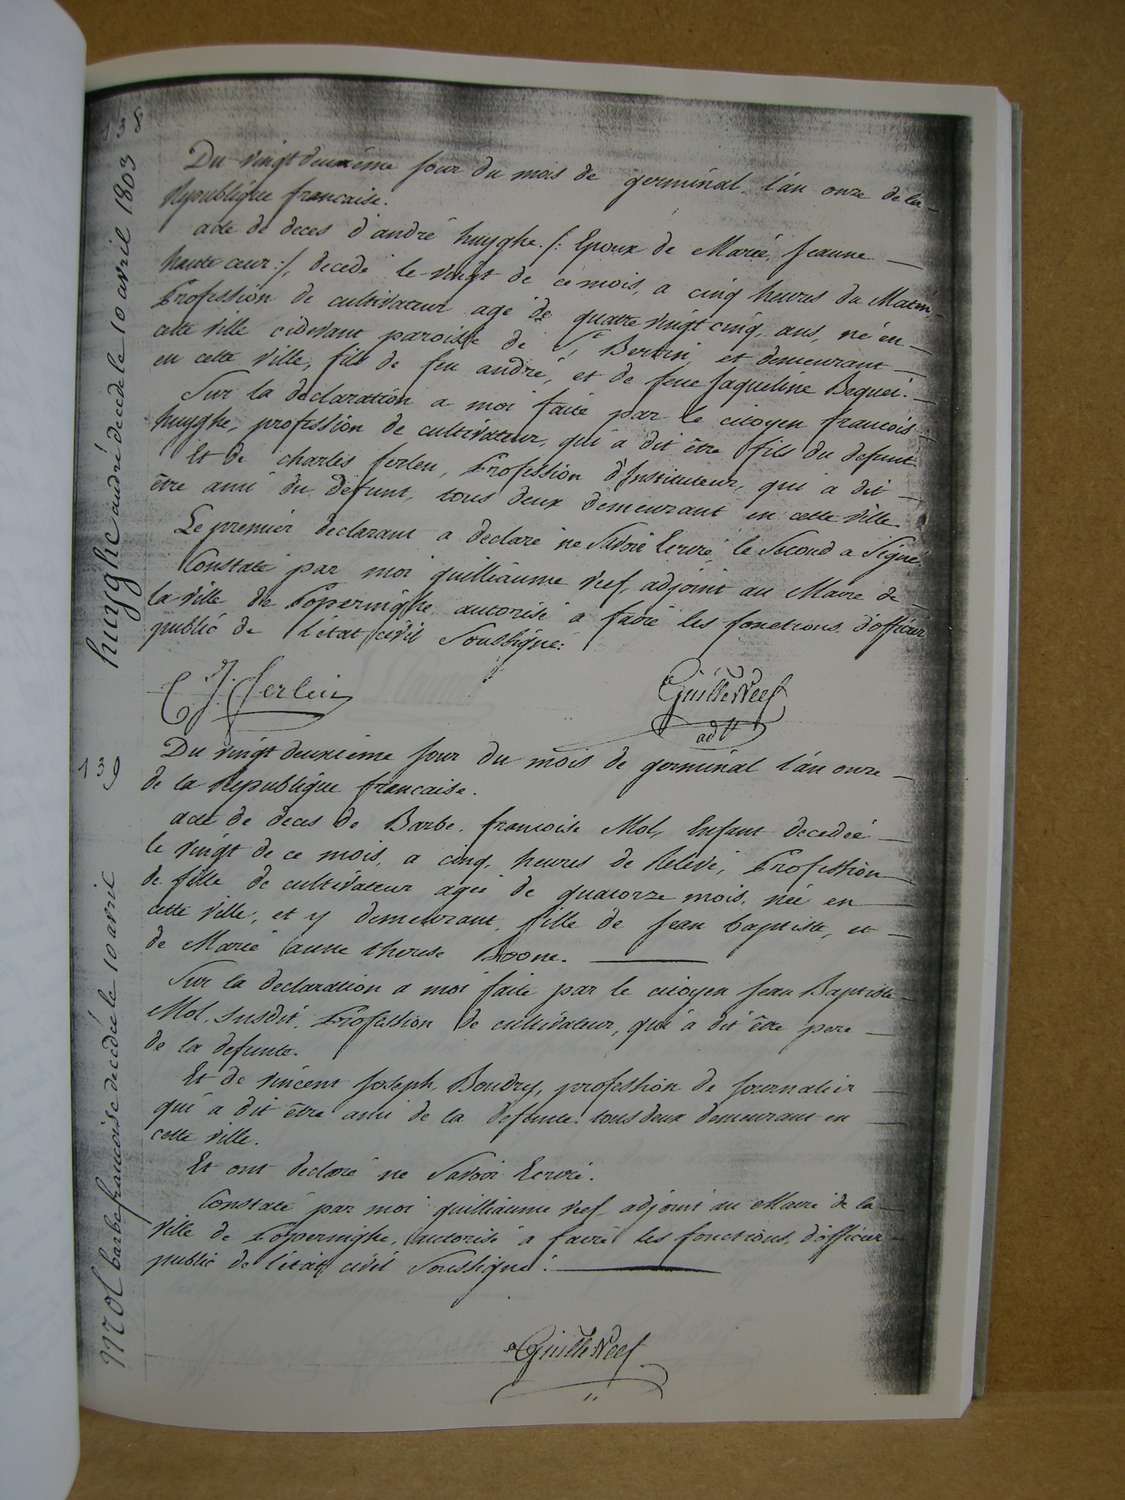 138
huyghe andré decede le 10 avril 1803
Du vingt deuxième jour du mois de germinal l'an onze de la
Republique française.
acte de deces d'andré huyghe /: Epoux de Marie Jeanne
haute cœur :/, decedé le vingt de ce mois, a cinq heures du Matin,
Profession de cultivateur agé de quatre vingt cinq, ans, né en
cette ville cidevant paroisse de St Bertin, et demeurant
en cette ville, fils de feu andré, et de feue Jaqueline Bequé.
Sur la declaration a moi faite par le citoyen francois
huyghe, profession de cultivateur, qui a dit être fils du defunt
Et de charles ferlen, Profession d'Instituteur, qui a dit
être ami du defunt, tous deux demeurant en cette ville.
Le premier declarant a declaré ne Savoir Ecrire, le Second a Signé.
Constaté par moi guilliaume neef, adjoint au Maire de
la ville de Poperinghe, autorisé a faire les fonctions d'officier
public de l'état civil Soussigné:
C. J. ferlein
Guille Neef
adt
139
mol barbe francoise decedée le 10 avril
Du vingt deuxième jour du mois de germinal l'an onze
de la Republique francaise.
acte de deces de Barbe francoise Mol, Enfant decedée
le vingt de ce mois, a cinq, heures de Relevé, Profession
de fille de cultivateur agée de quatorze mois, née en
cette ville, et y demeurant, fille de Jean baptiste, et
de Marie anne therese Boone.
Sur la declaration a moi faite par le citoyen Jean Baptiste
Mol, susdit, Profession de cultivateur, qui a dit être pere
de la defunte.
Et de vincent Joseph Boudry, profession de Journalier
qui a dit être ami de la defunte. tous deux demeurant en
cette ville.
Et ont declaré ne Savoir Ecrire.
Constaté par moi guilliaume neef adjoint au Maire de la
ville de Poperinghe, autorisé a faire les fonctions d'officier
public de l'état civil Soussigné.
Guille Neef